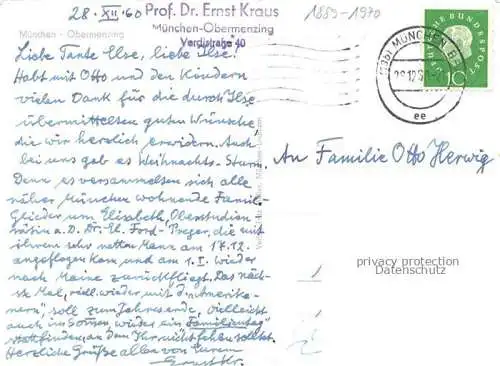 28. XII 60
Prof. Dr. Ernst Kraus
München-Obermenzing
Verdistraße 40
1889-1970
München - Obermenzing
Liebe Tante Else, liebe Ilse!
Habt mit Otto und den Kindern
vielen Dank für die durch Ilse
übermittelten guten Wünsche,
die wir herzlich erwidern. Auch
bei uns gab es Weihnachts-Sturm.
Denn es versammelten sich alle
näher München wohnende Famil.
Glieder um Elisabeth, Oberstudien
rätin a.D. Dr. El. Ford-Preger, die mit
ihrem sehr netten Mann am 17.12.
angeflogen kam und am 1.I. wieder
nach Maine zurückfliegt. Das näch-
ste Mal, viell. wieder mit d. "Amerika-
nern" soll zum Jahresende, vielleicht
auch im Sommer wieder ein "Familientag"
stattfinden, an dem Ihr nicht fehlen solltet.
Herzliche Grüße allen von Eurem
Ernst Kr.
An Familie Otto Herwig
DEUTSCHE BUNDESPOST
10
(13b) MÜNCHEN BP
ee
privacy protection
Datenschutz